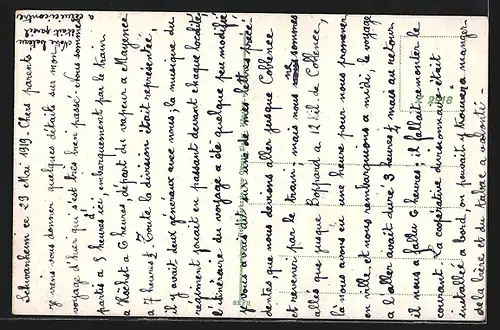 Schwanheim ce 29 Mai 1919 - Chers parents
Je viens vous donner quelques détails sur mon
voyage d'hier qui s'est très bien passé. Nous sommes
partis à 5 heures ici, embarquement par le train
à Höchst à 6 heures, départ du vapeur à Mayence
à 7 heures ½. Toute la division était représentée,
il y avait deux généraux avec nous; la musique du
régiment jouait en passant devant chaque localité
l'itinéraire du voyage a été quelque peu modifié
je vous avais dit sur une de mes lettres précé
dentes, que nous devions aller jusque Coblence
et revenir par le train; mais nous ne sommes
allés que jusque Boppard à 12 kil. de Coblence,
là nous avons eu une heure pour nous promener
en ville et nous rembarquions à midi, le voyage
à l'aller avait duré 3 heures ½ mais au retour
il nous a fallu 6 heures; il fallait remonter le
courant. La coopérative divisionnaire était
installée à bord, on pouvait y trouver à manger
de la bière et du tabac à volonté -